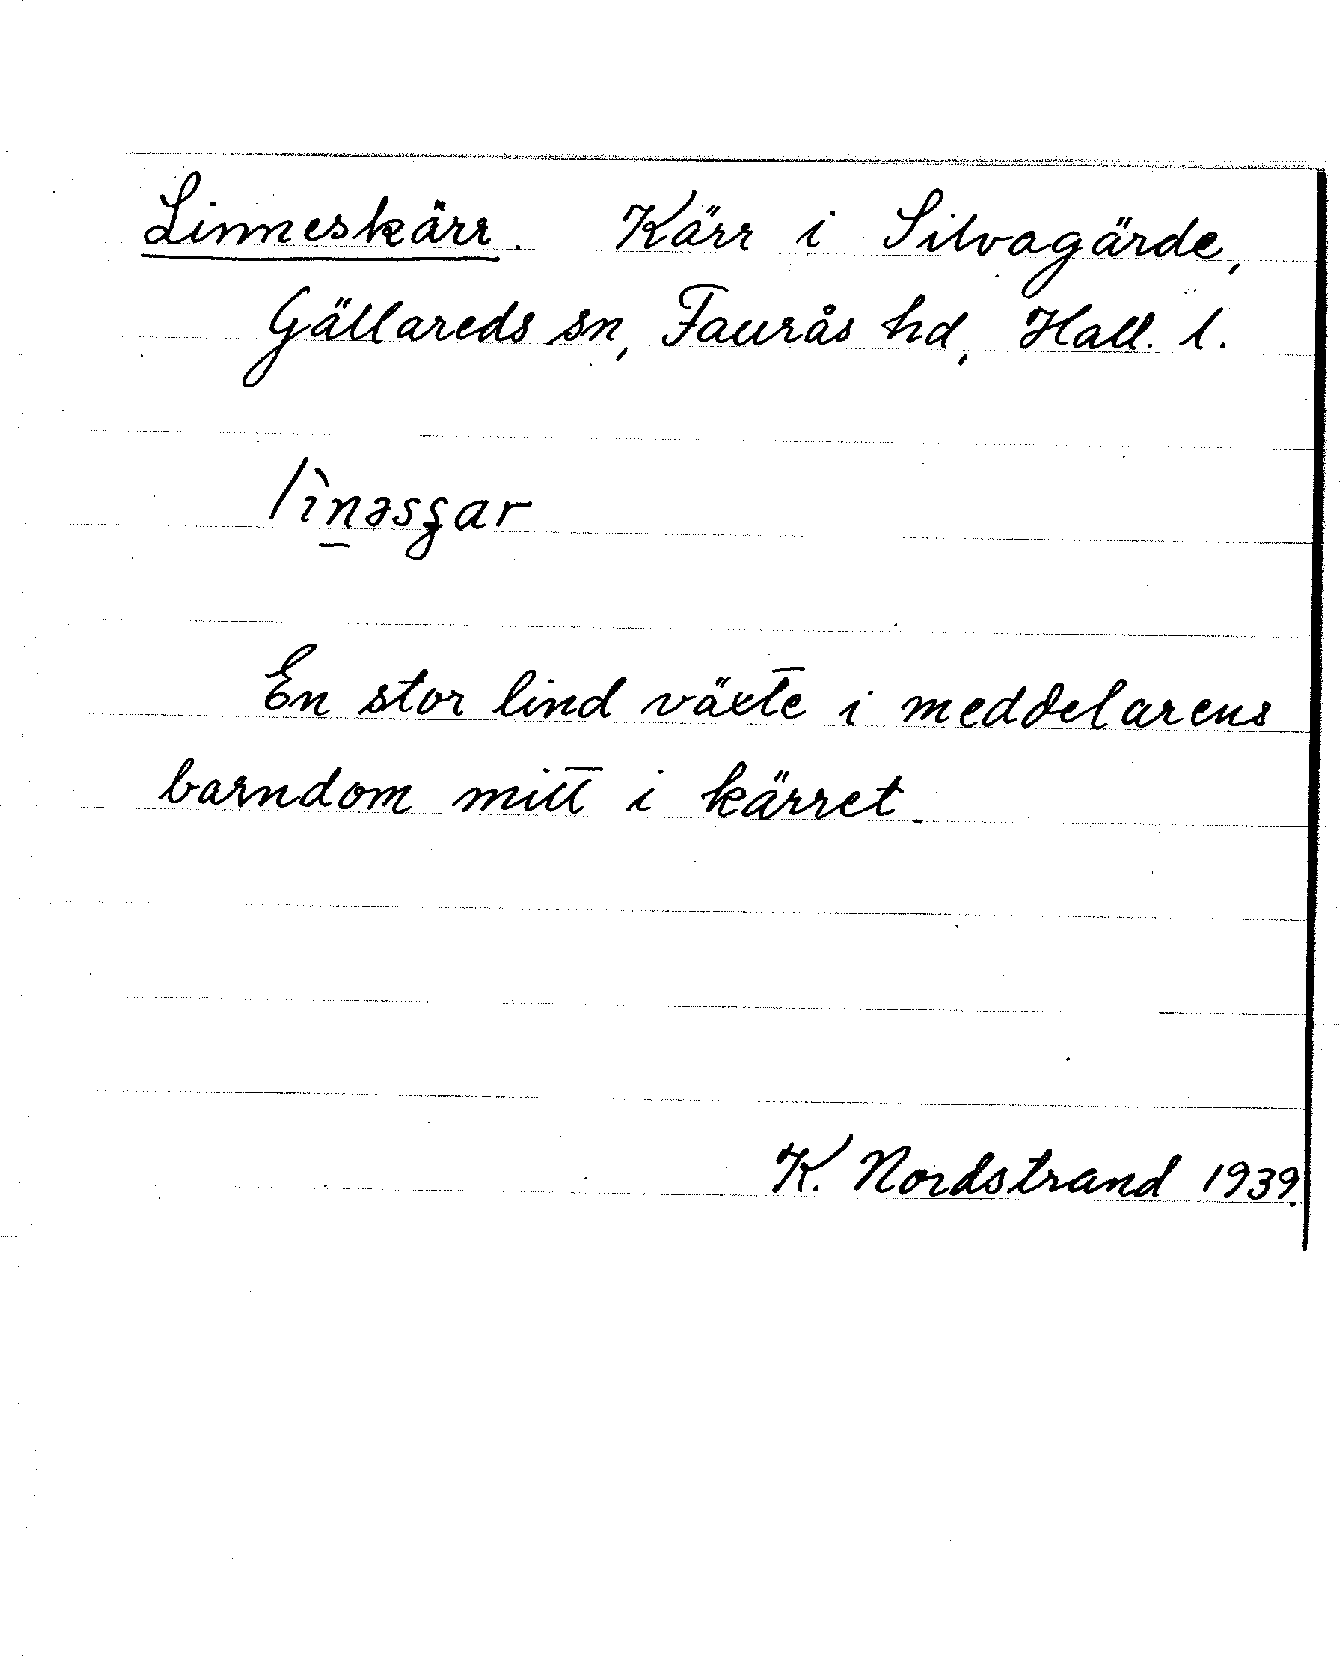 Linneskärr. Kärr i Silvagärde,
Gällareds sn, Faurås hd, Hall. l.
lìnəsgar
En stor lind växte i meddelarens
barndom mitt i kärret.
K. Nordstrand 1939.